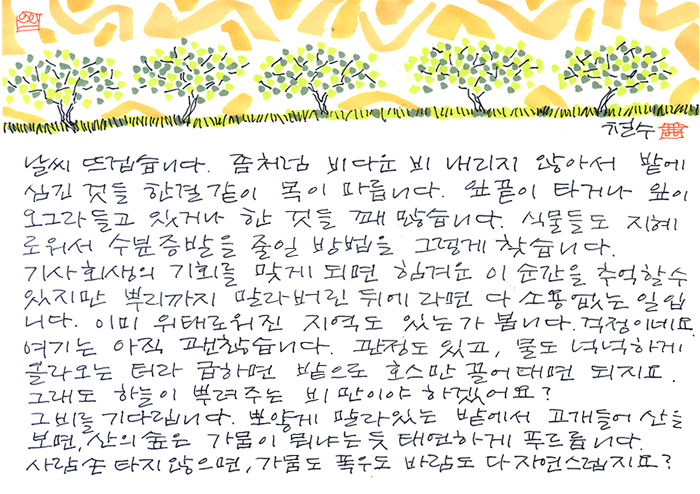 철수
날씨 뜨겁습니다. 좀처럼 비다운 비 내리지 않아서 밭에
심긴 것들 한결같이 목이 마릅니다. 잎끝이 타거나 잎이
오그라들고 있거나 한 것들 꽤 많습니다. 식물들도 지혜
로워서 수분증발을 줄일 방법을 그렇게 찾습니다.
기사회생의 기회를 맞게 되면 힘겨운 이 순간을 추억할수
있지만 뿌리까지 말라버린 뒤에 라면 다 소용없는 일입
니다. 이미 위태로워진 지역도 있는가 봅니다. 걱정이네요.
여기는 아직 괜찮습니다. 관정도 있고, 물도 넉넉하게
올라오는 터라 급하면 밭으로 호스만 끌어대면 되지요.
그래도 하늘이 뿌려주는 비 만이야 하겠어요?
그 비를 기다립니다. 뽀얗게 말라있는 밭에서 고개들어 산을
보면, 산의 숲은 가뭄이 뭐냐는 듯 태연하게 푸르릅니다.
사람 손 타지 않으면, 가뭄도 폭우도 바람도 다 자연스럽지요?